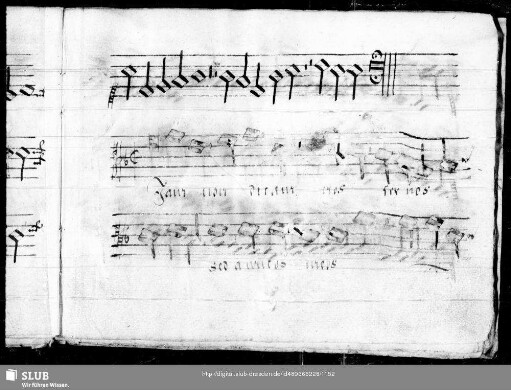 Jam non dicam vos servos
sed amicos meos
http://digital.slub-dresden.de/id489065226/152
SLUB
Wir führen Wissen.